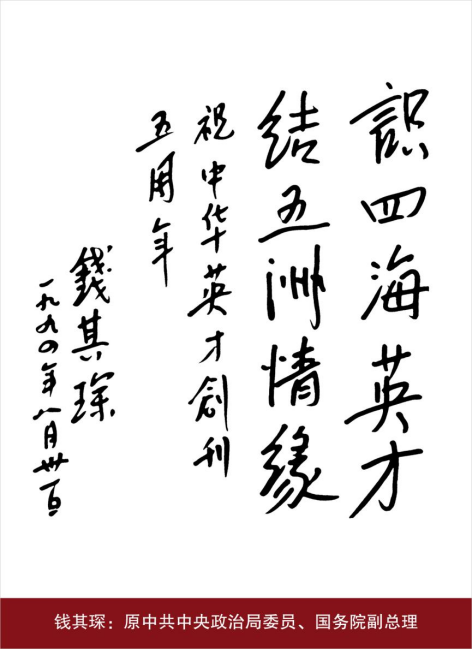 識四海英才
结五洲情缘
祝中华英才創刊
五周年
錢其琛
一九九四年八月卅一日
钱其琛：原中共中央政治局委员、国务院副总理